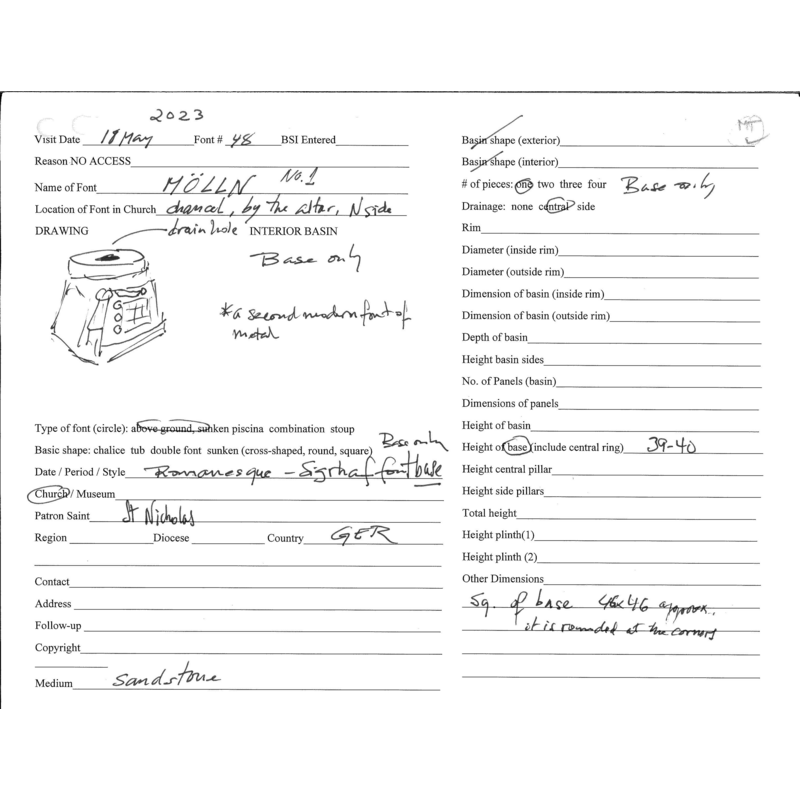 2023
Visit Date 18 May Font # 48 BSI Entered
Reason NO ACCESS
Name of Font MÖLLN No.1
Location of Font in Church chancel, by the altar, N side
DRAWING drain hole INTERIOR BASIN
Base only
*a second modern font of
metal
Type of font (circle): above ground, sunken piscina combination stoup
Base only
Basic shape: chalice tub double font sunken (cross-shaped, round, square)
Date / Period / Style Romanesque - Sigrhaf font base
Church / Museum
Patron Saint St Nicholas
Region Diocese Country GER
Contact
Address
Follow-up
Copyright
Medium Sandstone
MT
Basin shape (exterior)
Basin shape (interior)
# of pieces: one two three four Base only
Drainage: none central side
Rim
Diameter (inside rim)
Diameter (outside rim)
Dimension of basin (inside rim)
Dimension of basin (outside rim)
Depth of basin
Height basin sides
No. of Panels (basin)
Dimensions of panels
Height of basin
Height of base (include central ring) 39-40
Height central pillar
Height side pillars
Total height
Height plinth(1)
Height plinth (2)
Other Dimensions
Sq. of base 46x46 approx.
it is rounded at the corners